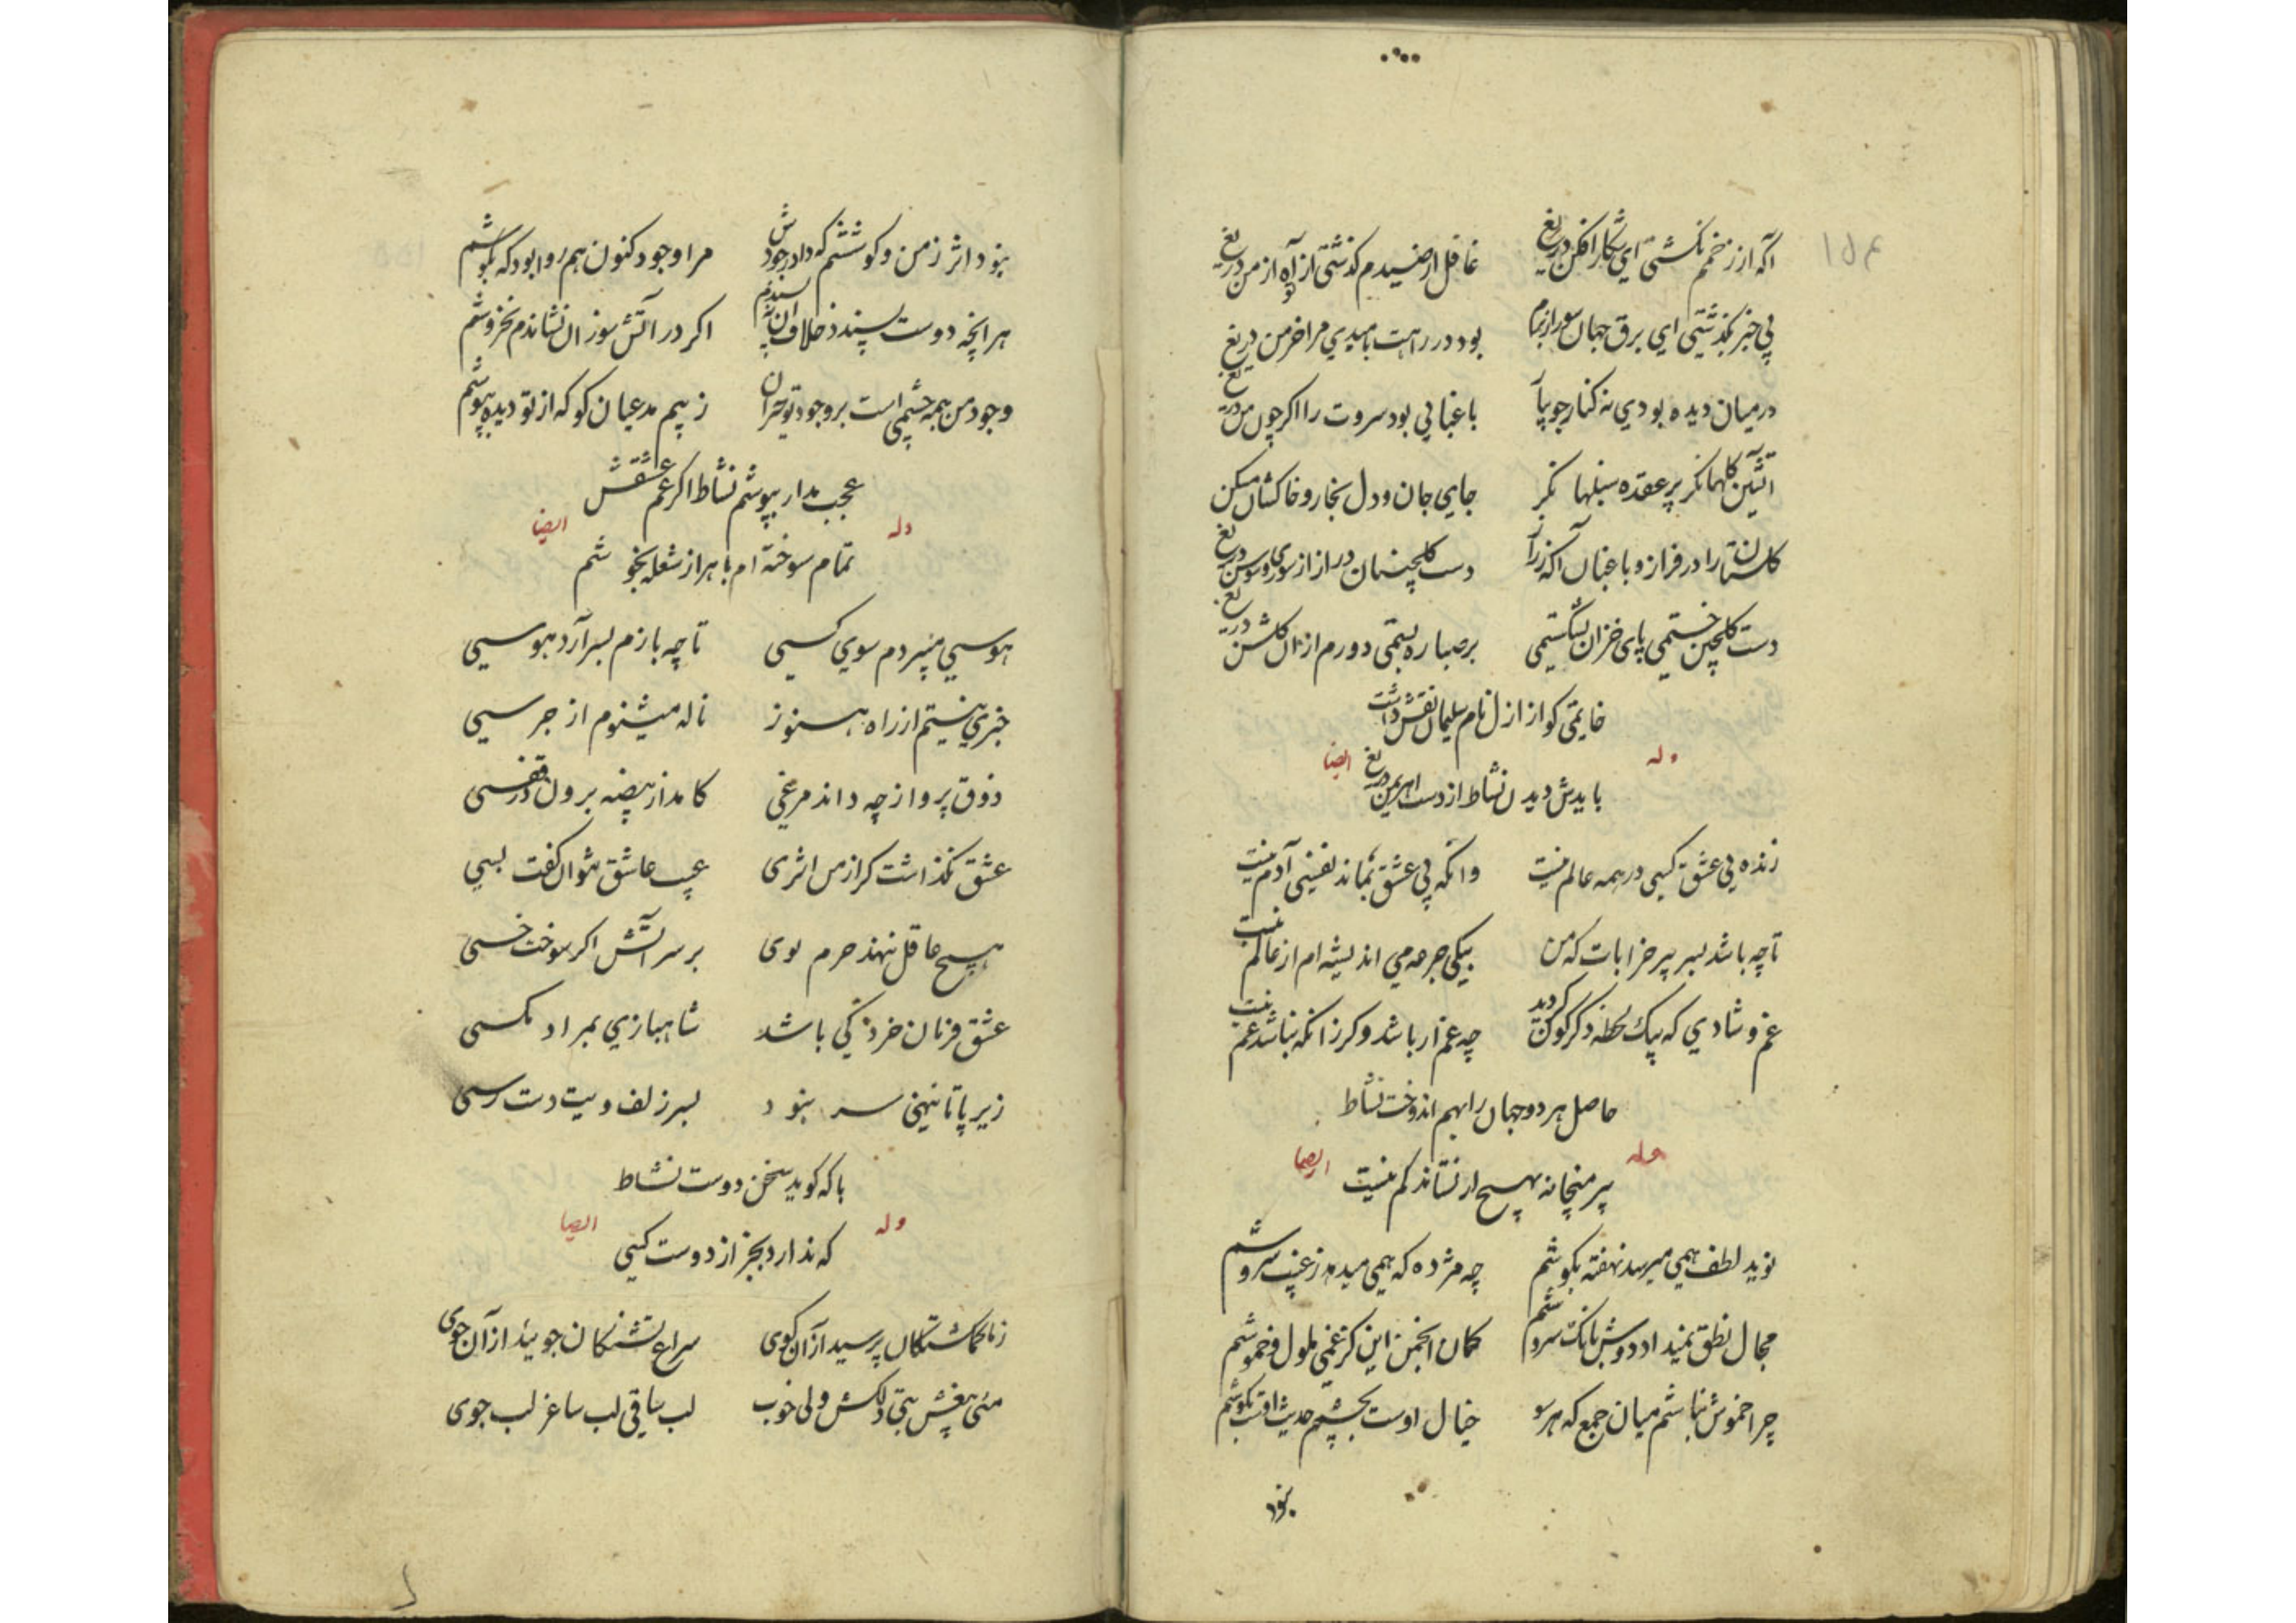 آگه از زخمم نکشتی ای شکار افکن دریغ غافل از صیدم گذشتی از تو آه از من دریغ
بی خبر بگذشتی ای برق جهان سوز از برم بود در راهت بامیدی مرا خرمن دریغ
درمیان دیده بودی نه کنار جو بپا باغبانی بود سروت را اگر چون من دریغ
آتشین گلها نگر پرعقده سنبلها نگر جای جان و دل بخار و خاکشان مسکن دریغ
گلستانت را در فراز و باغبان آگه ز راز دست گلچینان دراز از سوری و سوسن دریغ
دست گلچین خستمی پای خزان بشکستمی بر صبا ره بستمی دورم از ان گلشن دریغ
خاتمی کو از ازل نام سلیمان نقش داشت
بایدش دیدن نشاط از دست اهریمن دریغ
وله ایضا
زنده بی عشق کسی در همه عالم نیست وانکه بی عشق بماند نفسی آدم نیست
تا چه باشد بسر پیر خرابات که من بیکی جرعه می اندیشه ام از عالم نیست
غم و شادی که بیک لحظه دگرگون گردید چه غم ار باشد و گر زانکه نباشد غم نیست
حاصل هر دو جهان را بهم اندوخت نشاط
پیر میخانه بهیچ ار نستاند کم نیست
وله ایضا
نوید لطف همی میرسد نهفته بگوشم چه مژده که همی میدهد ز غیب سروشم
مجال نطق نمیداد دوش بانک سروشم گمان انجمن این کز غمی ملول و خموشم
چرا خموش نباشم میان جمع که هر سو خیال اوست بچشمم حدیث اوست بگوشم
نبود
نبود اثر ز من و کوششم که داد وجودش مرا وجود کنون هم روا بود که بکوشم
هر انچه دوست پسندد خلاف ان نپسندم اگر در آتش سوزان نشاندم نخروشم
وجود من همه چشمی است بر وجود تو حیران ز بیم مدعیان کو که از تو دیده بپوشم
عجب مدار بپوشم نشاط اگر غم عشقش
تمام سوخته ام با هزار شعله بخوشم
وله ایضا
هوسی میبردم سوی کسی تا چه بازم بسر آرد هوسی
خبری نیستم از راه هنوز ناله میشنوم از جرسی
ذوق پرواز چه داند مرغی کامد از بیضه برون در قفسی
عشق نگذاشت کز از من اثری عیب عاشق نتوان گفت بسی
هیچ عاقل ننهد جرم بوی بر سر آتش اگر سوخت خسی
عشق فرمان خرد کی باشد شاهبازی بمراد مگسی
زیر پا تا ننهی سر نبود بسر زلف ویت دست رسی
با که گوید سخن دوست نشاط
که ندارد بجز از دوست کسی
وله ایضا
ز ما گمگشتگان پرسید از آن کوی سراغ تشنگان جوئید از آن جوی
مئی بیغش بتی دلکش ولی خوب لب ساقی لب ساغر لب جوی